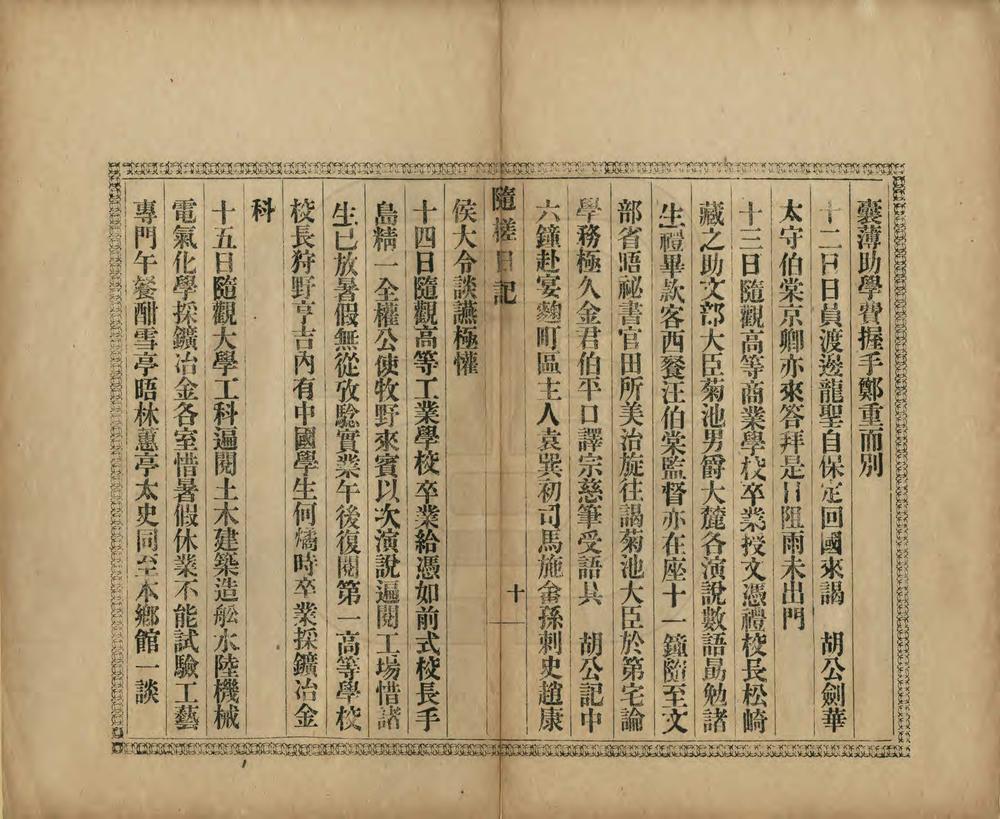 囊薄助學費握手鄭重而別
十二日日員渡邊龍聖自保定回國來謁　胡公劍華
太守伯棠京卿亦來答拜是日阻雨未出門
十三日隨觀高等商業學校卒業授文憑禮校長松崎
藏之助文部大臣菊池男爵大麓各演說數語勗勉諸
生禮畢款客西餐汪伯棠監督亦在座十一鐘隨至文
部省晤祕書官田所美治旋往謁菊池大臣於第宅論
學務極久金君伯平口譯宗慈筆受語具　胡公記中
六鐘赴宴麴町區主人袁巽初司馬施畬孫刺史趙康
隨槎日記
十
侯大令談讌極懽
十四日隨觀高等工業學校卒業給憑如前式校長手
島精一全權公使牧野來賓以次演說遍閱工場惜諸
生已放暑假無從攷驗實業午後復閱第一高等學校
校長狩野亨吉內有中國學生何燏時卒業採鑛冶金
科
十五日隨觀大學工科遍閱土木建築造舩水陸機械
電氣化學採鑛冶金各室惜暑假休業不能試驗工藝
專門午餐酣雪亭晤林蕙亭太史同至本鄉館一談